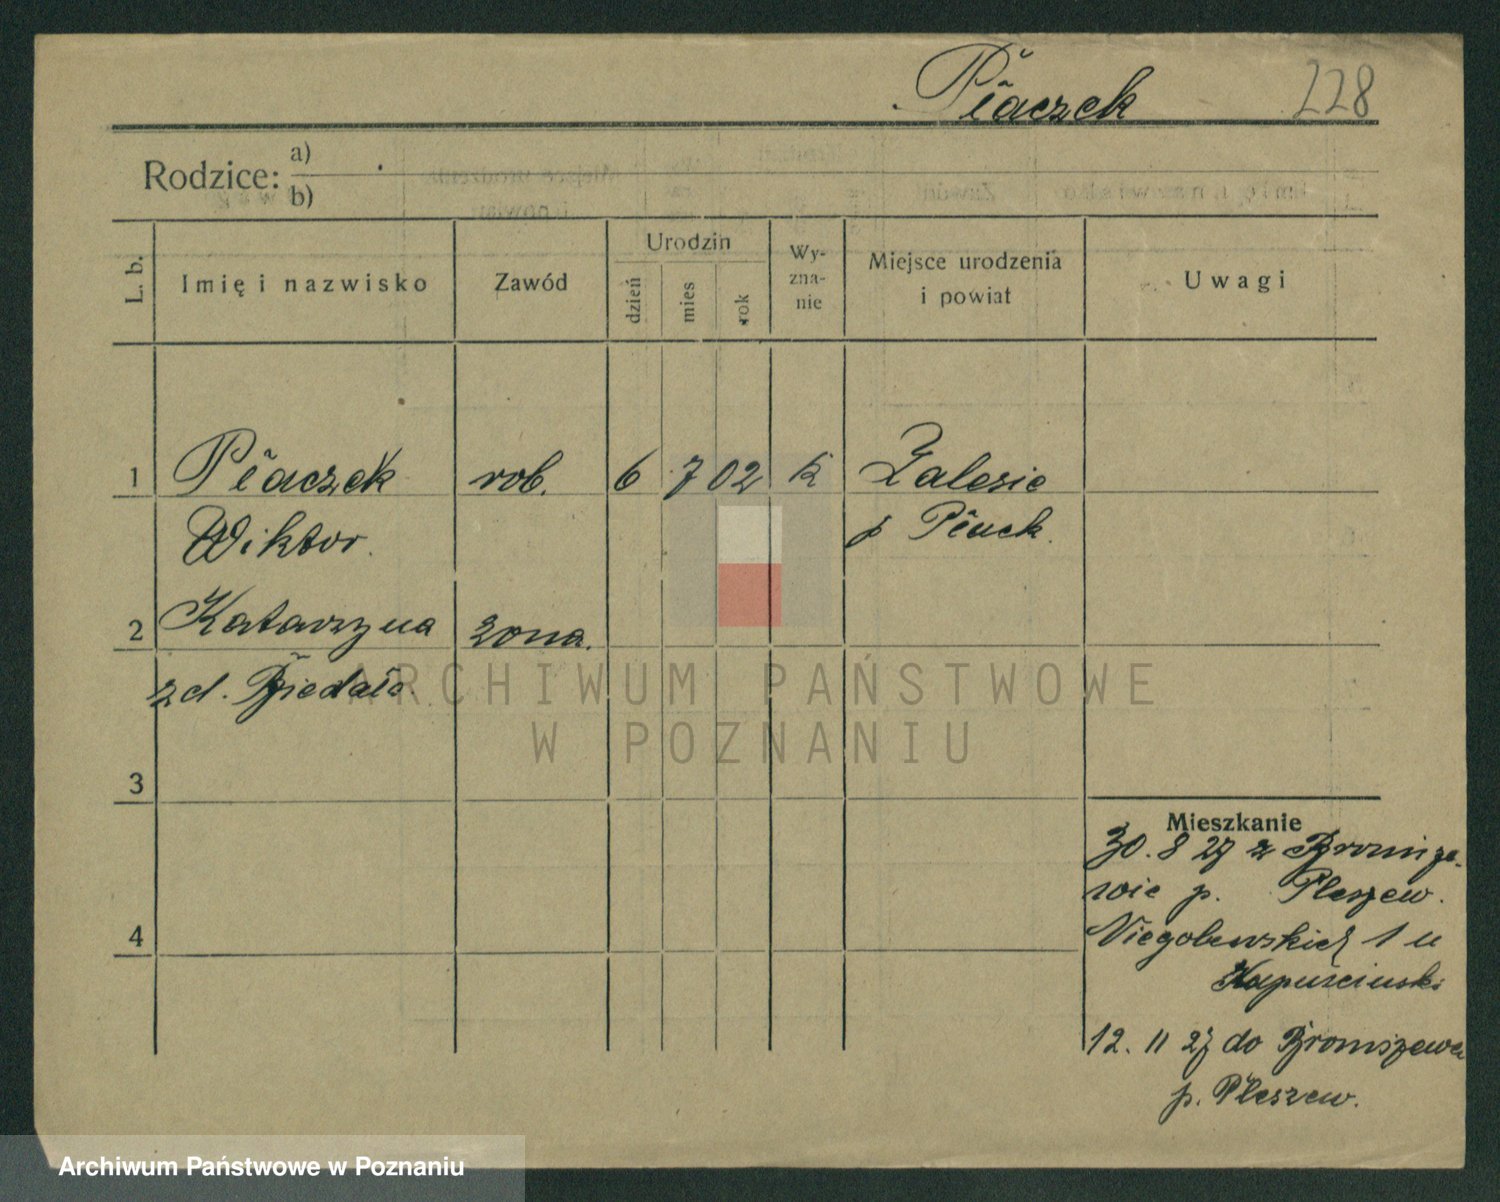 Płaczek 228
Rodzice: a)
b)
L. b. Imię i nazwisko Zawód Urodzin dzień mies rok Wy-zna-nie Miejsce urodzenia i powiat Uwagi
1 Płaczek rob. 6 7 02 k Zalesie
Wiktor. p
2 Katarzyna żona.
zd.
3
Mieszkanie
30. 8 27 z
wie p. Pleszew.
4
Niegolewskich 1 u
Kapuściński
12. 11 27 do
p. Pleszew.
ARCHIWUM PAŃSTWOWE
W POZNANIU
Archiwum Państwowe w Poznaniu